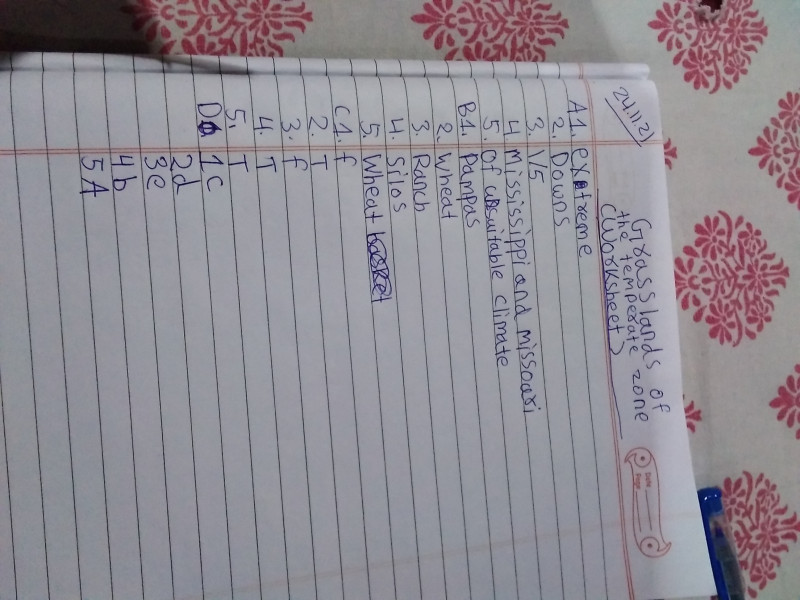 24.11.21
Grasslands of
the temperate zone
(Worksheet)
Date
Page
A1. extreme
2. Downs
3. 1/5
4 mississippi and missouri
5. of unsuitable climate
B1. Pampas
2. Wheat
3. Ranch
4. Silos
5. Wheat basket
C1. f
2. T
3. f
4. T
5. T
D 1 C
2d
3e
4b
5A